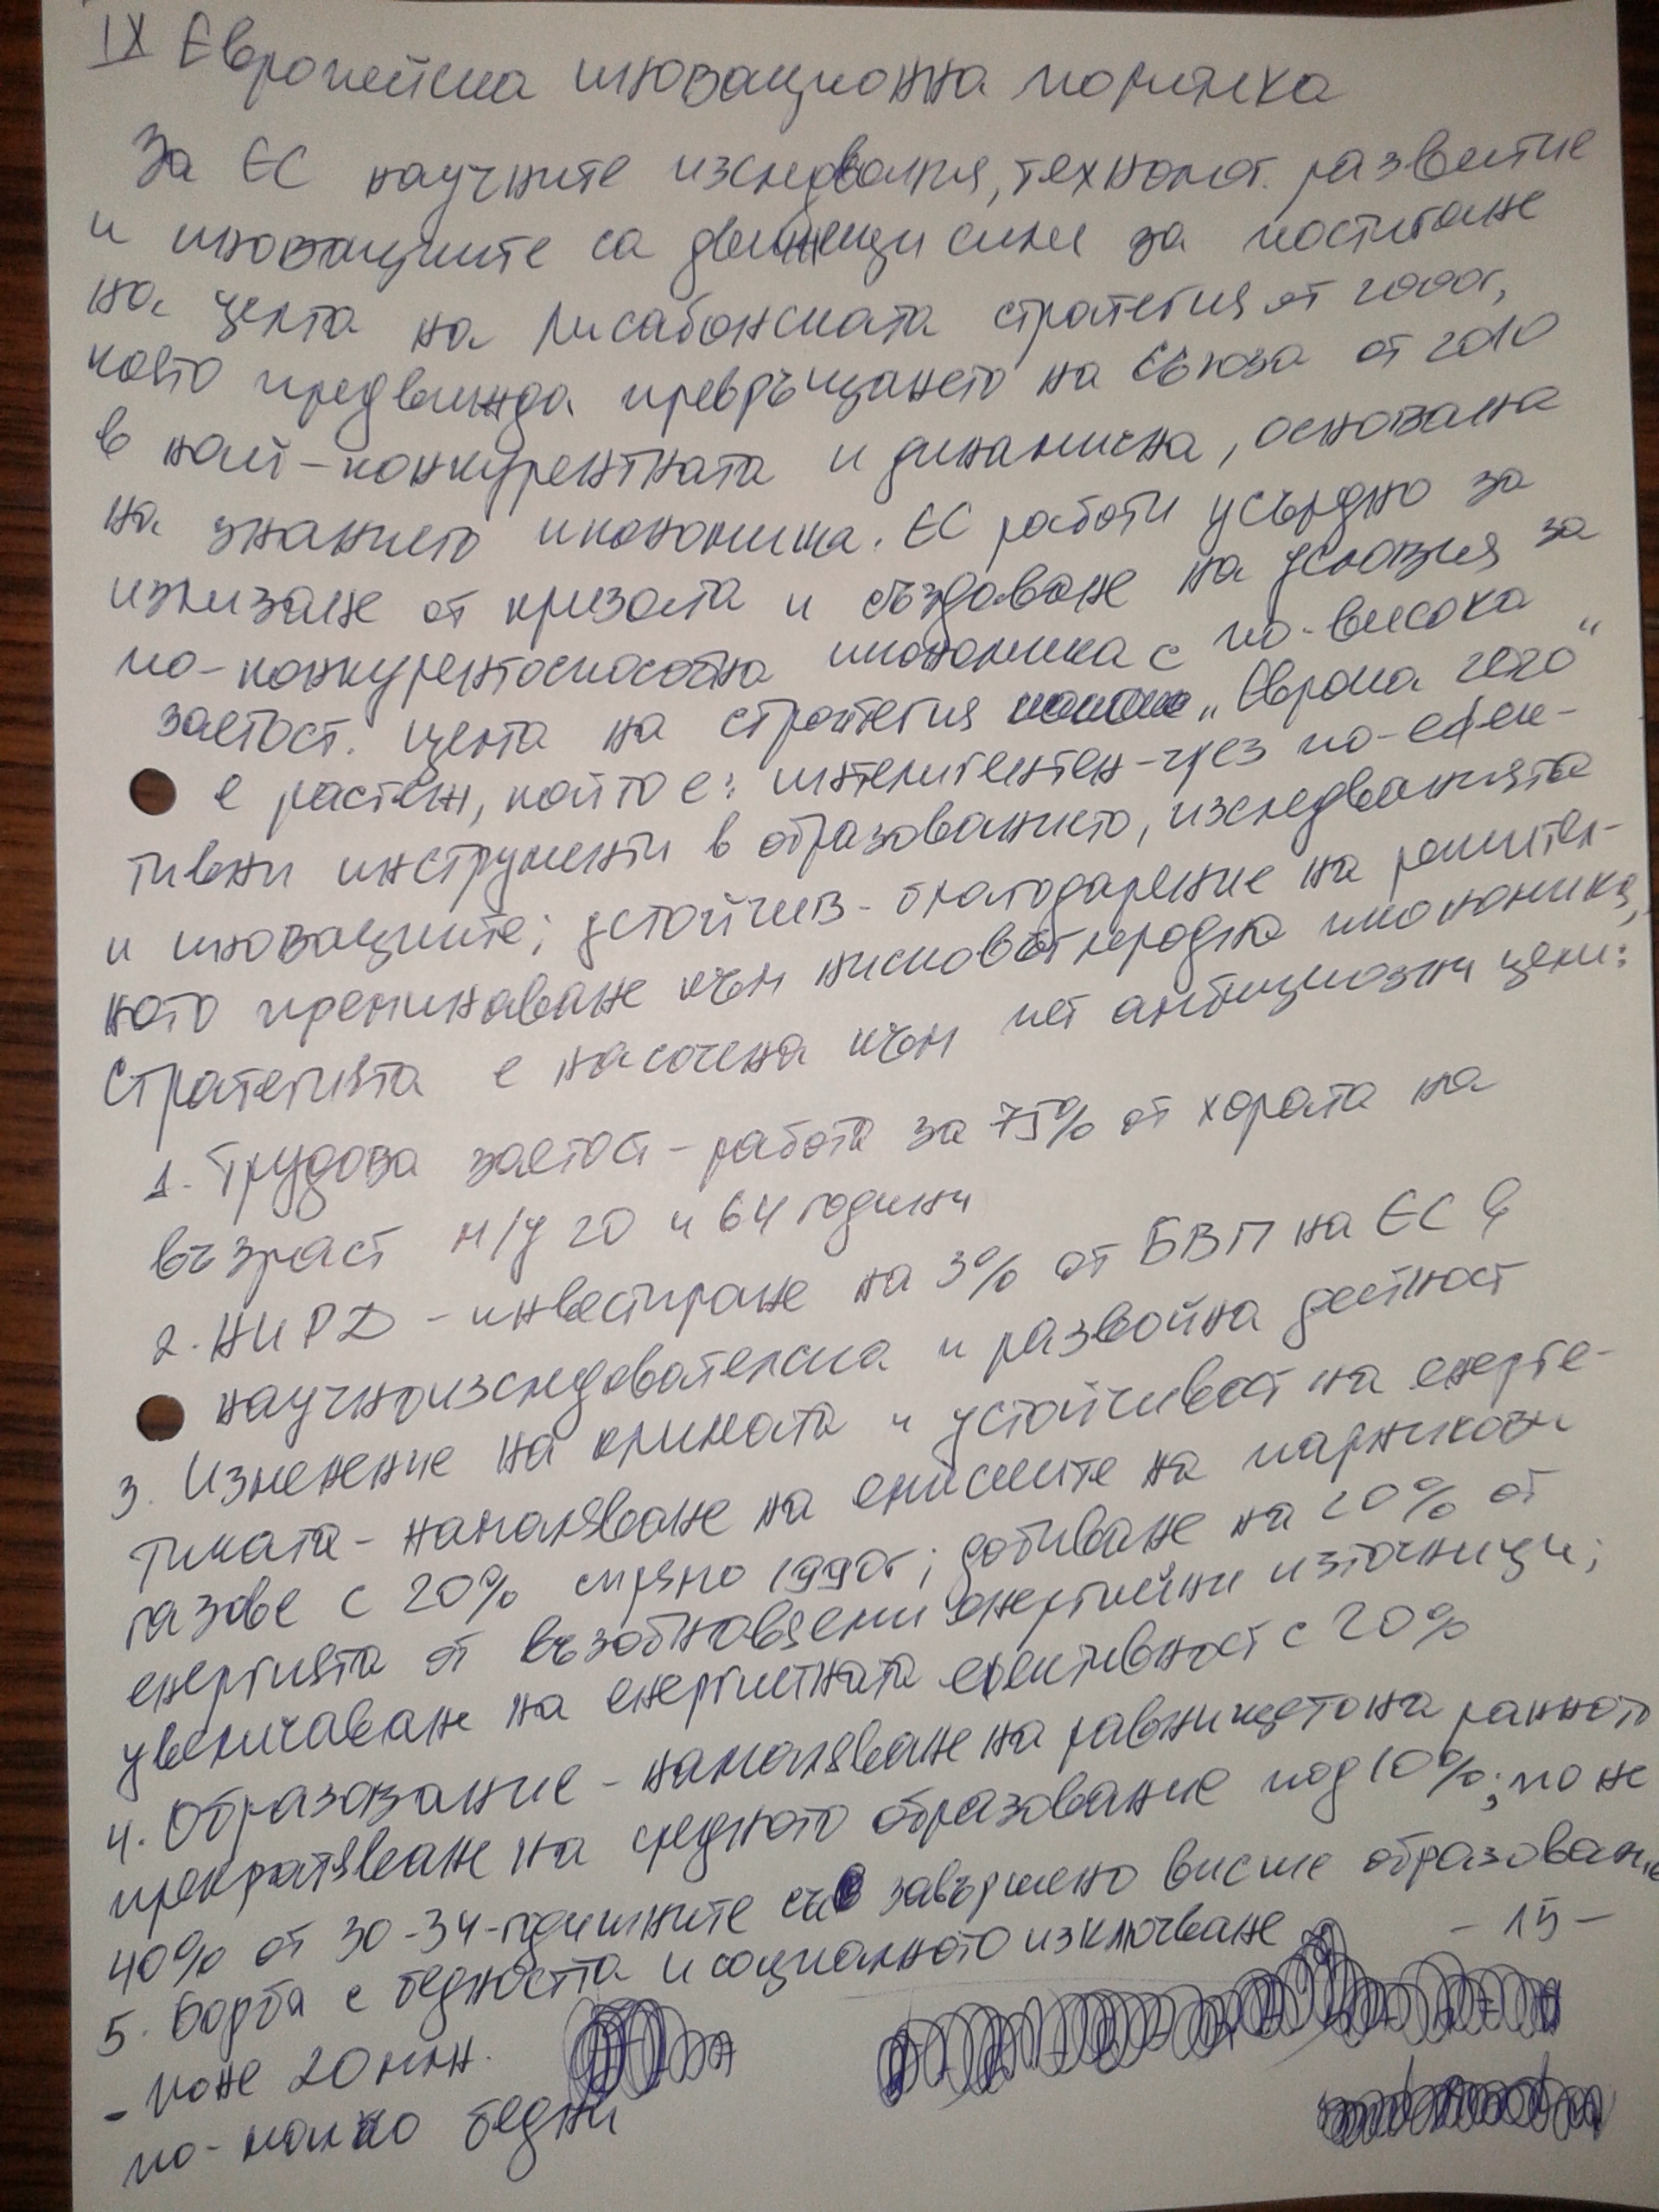 IX Европейска иновационна политика
За ЕС научните изследвания, технолог. развитие
и иновациите са движещи сили за постигане
на целта на Лисабонската стратегия от 2000г,
която предвижда превръщането на Съюза от 2010
в най-конкурентната и динамична, основана
на знанието икономика. ЕС работи усърдно за
излизане от кризата и създаване на условия за
по-конкурентоспособна икономика с по-висока
заетост. Целта на стратегия „Европа 2020“
е растеж, който е: интелигентен-чрез по-ефек-
тивни инструменти в образованието, изследванията
и иновациите; устойчив-благодарение на решител-
ното преминаване към нисковъглеродна икономика,
Стратегията е насочена към пет амбициозни цели:
1. Трудова заетост-работа за 75% от хората на
възраст м/у 20 и 64 години
2. НИРД - инвестиране на 3% от БВП на ЕС в
научноизследователска и развойна дейност
3. Изменение на климата и устойчивост на енерге-
тиката - намаляване на емисиите на парникови
газове с 20% спрямо 1990г; добиване на 20% от
енергията от възобновяеми енергийни източници;
увеличаване на енергийната ефективност с 20%
4. Образование - намаляване на равнището на ранното
прекратяване на средното образование под 10%; поне
40% от 30-34-годишните със завършено висше образование
5. Борба с бедността и социалното изключване
- 15 -
- поне 20 млн.
по-малко бедни